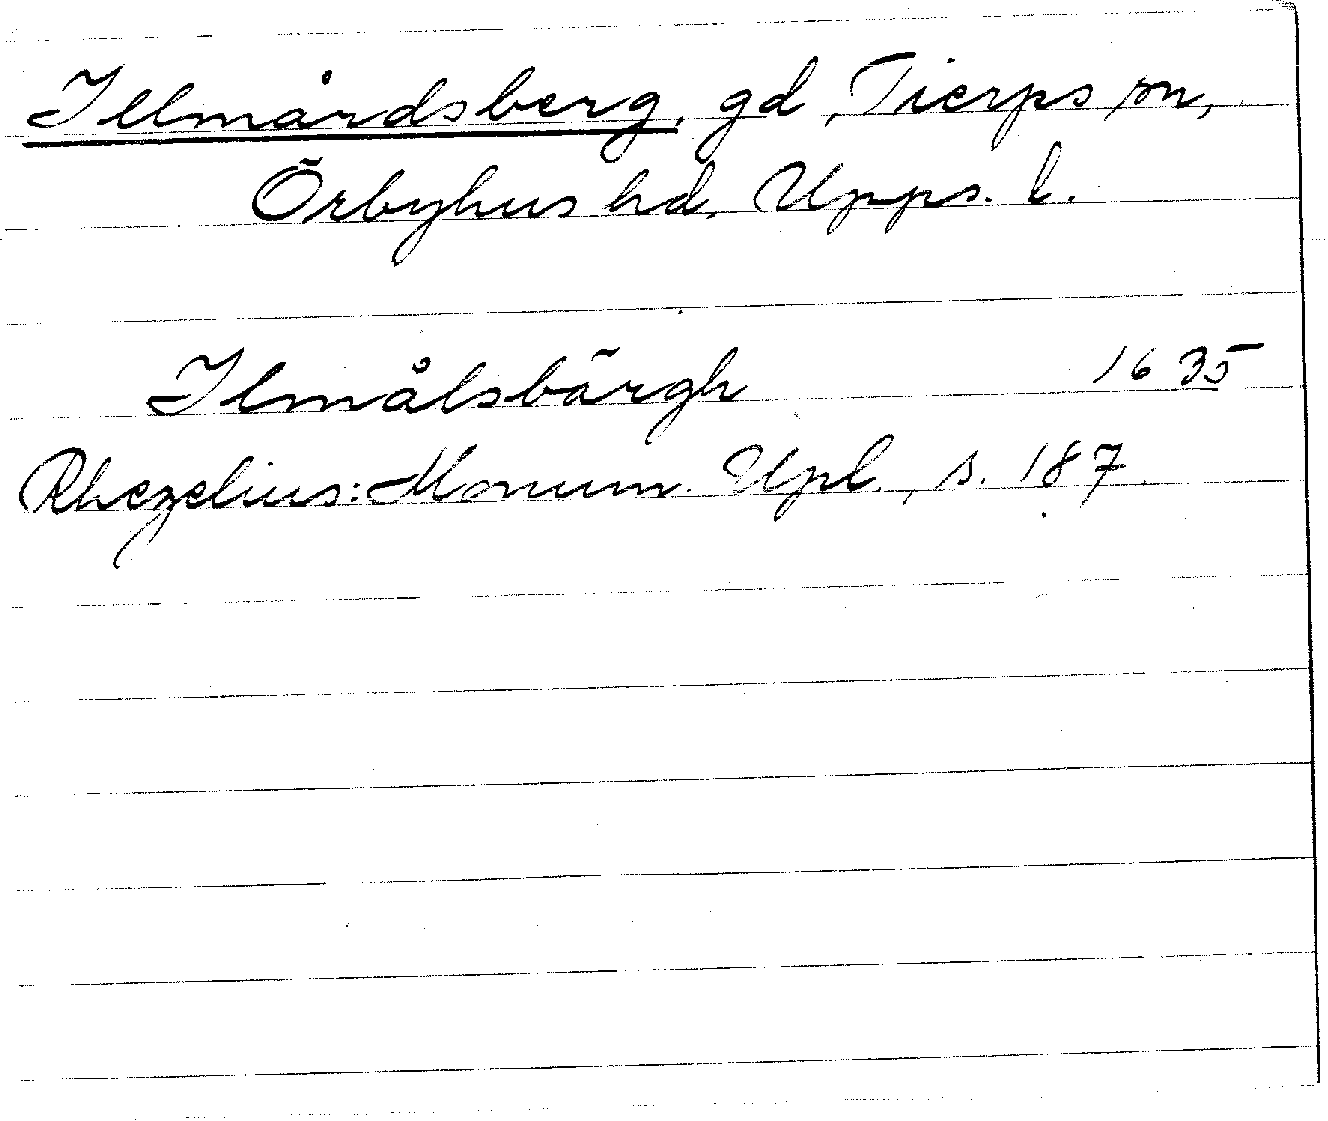 Illmårdsberg, gd, Tierps sn,
Örbyhus hd, Upps. l.
Ilmålsbärgh 1635
Rhezelius: Monum. Upl., s. 187